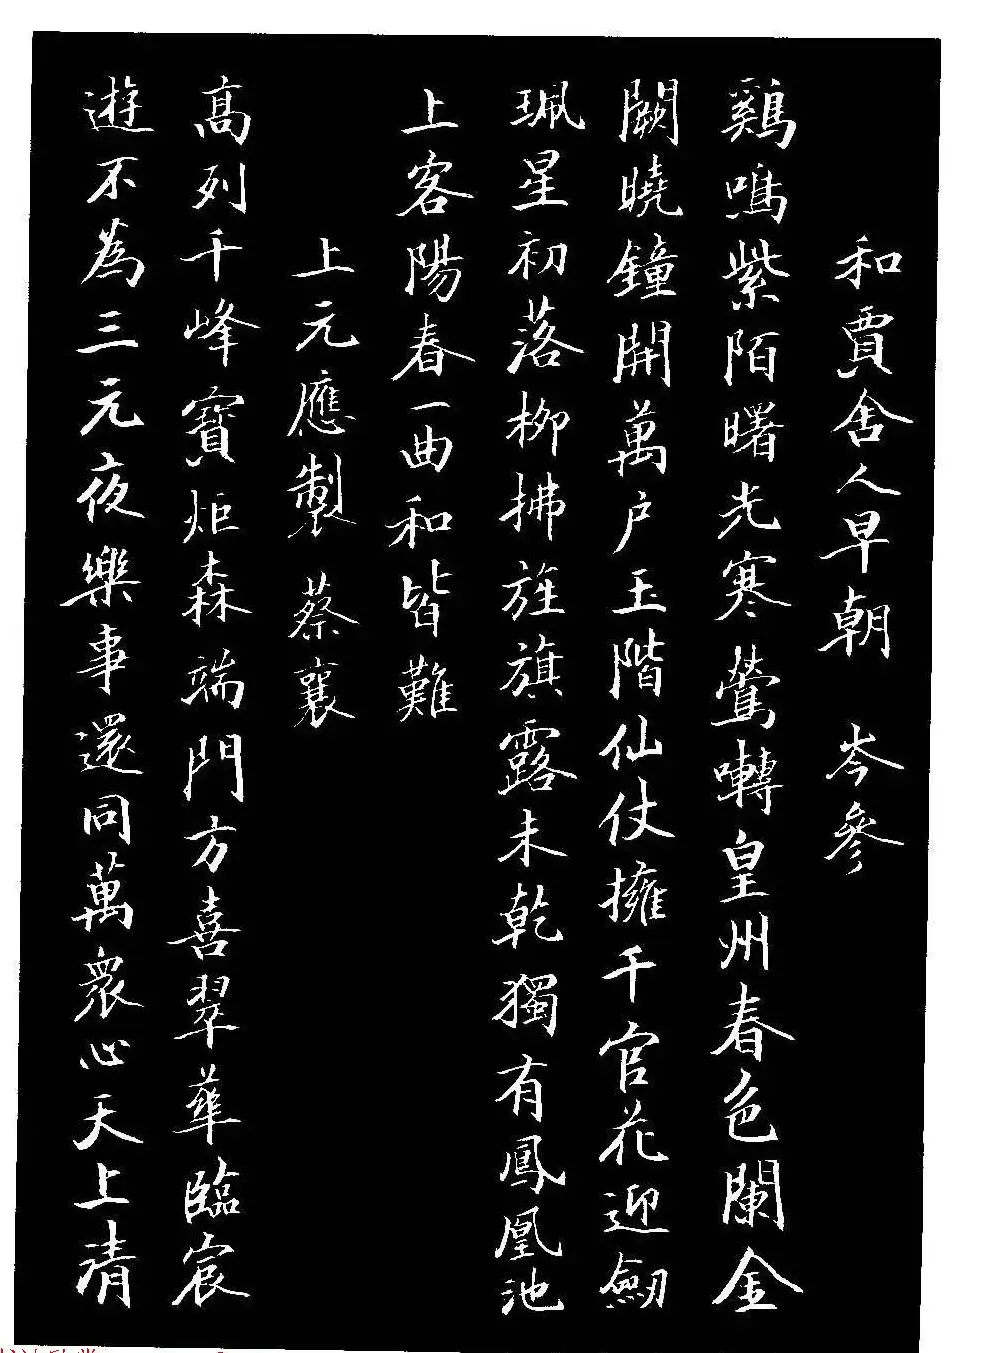 和賈舍人早朝 岑參
鷄鳴紫陌曙光寒鶯囀皇州春色闌金
闕曉鐘開萬户玉階仙仗擁千官花迎劒
珮星初落柳拂旌旗露未乾獨有鳳凰池
上客陽春一曲和皆難
上元應製 蔡襄
高列千峰寶炬森端門方喜翠華臨宸
遊不為三元夜樂事還同萬眾心天上清